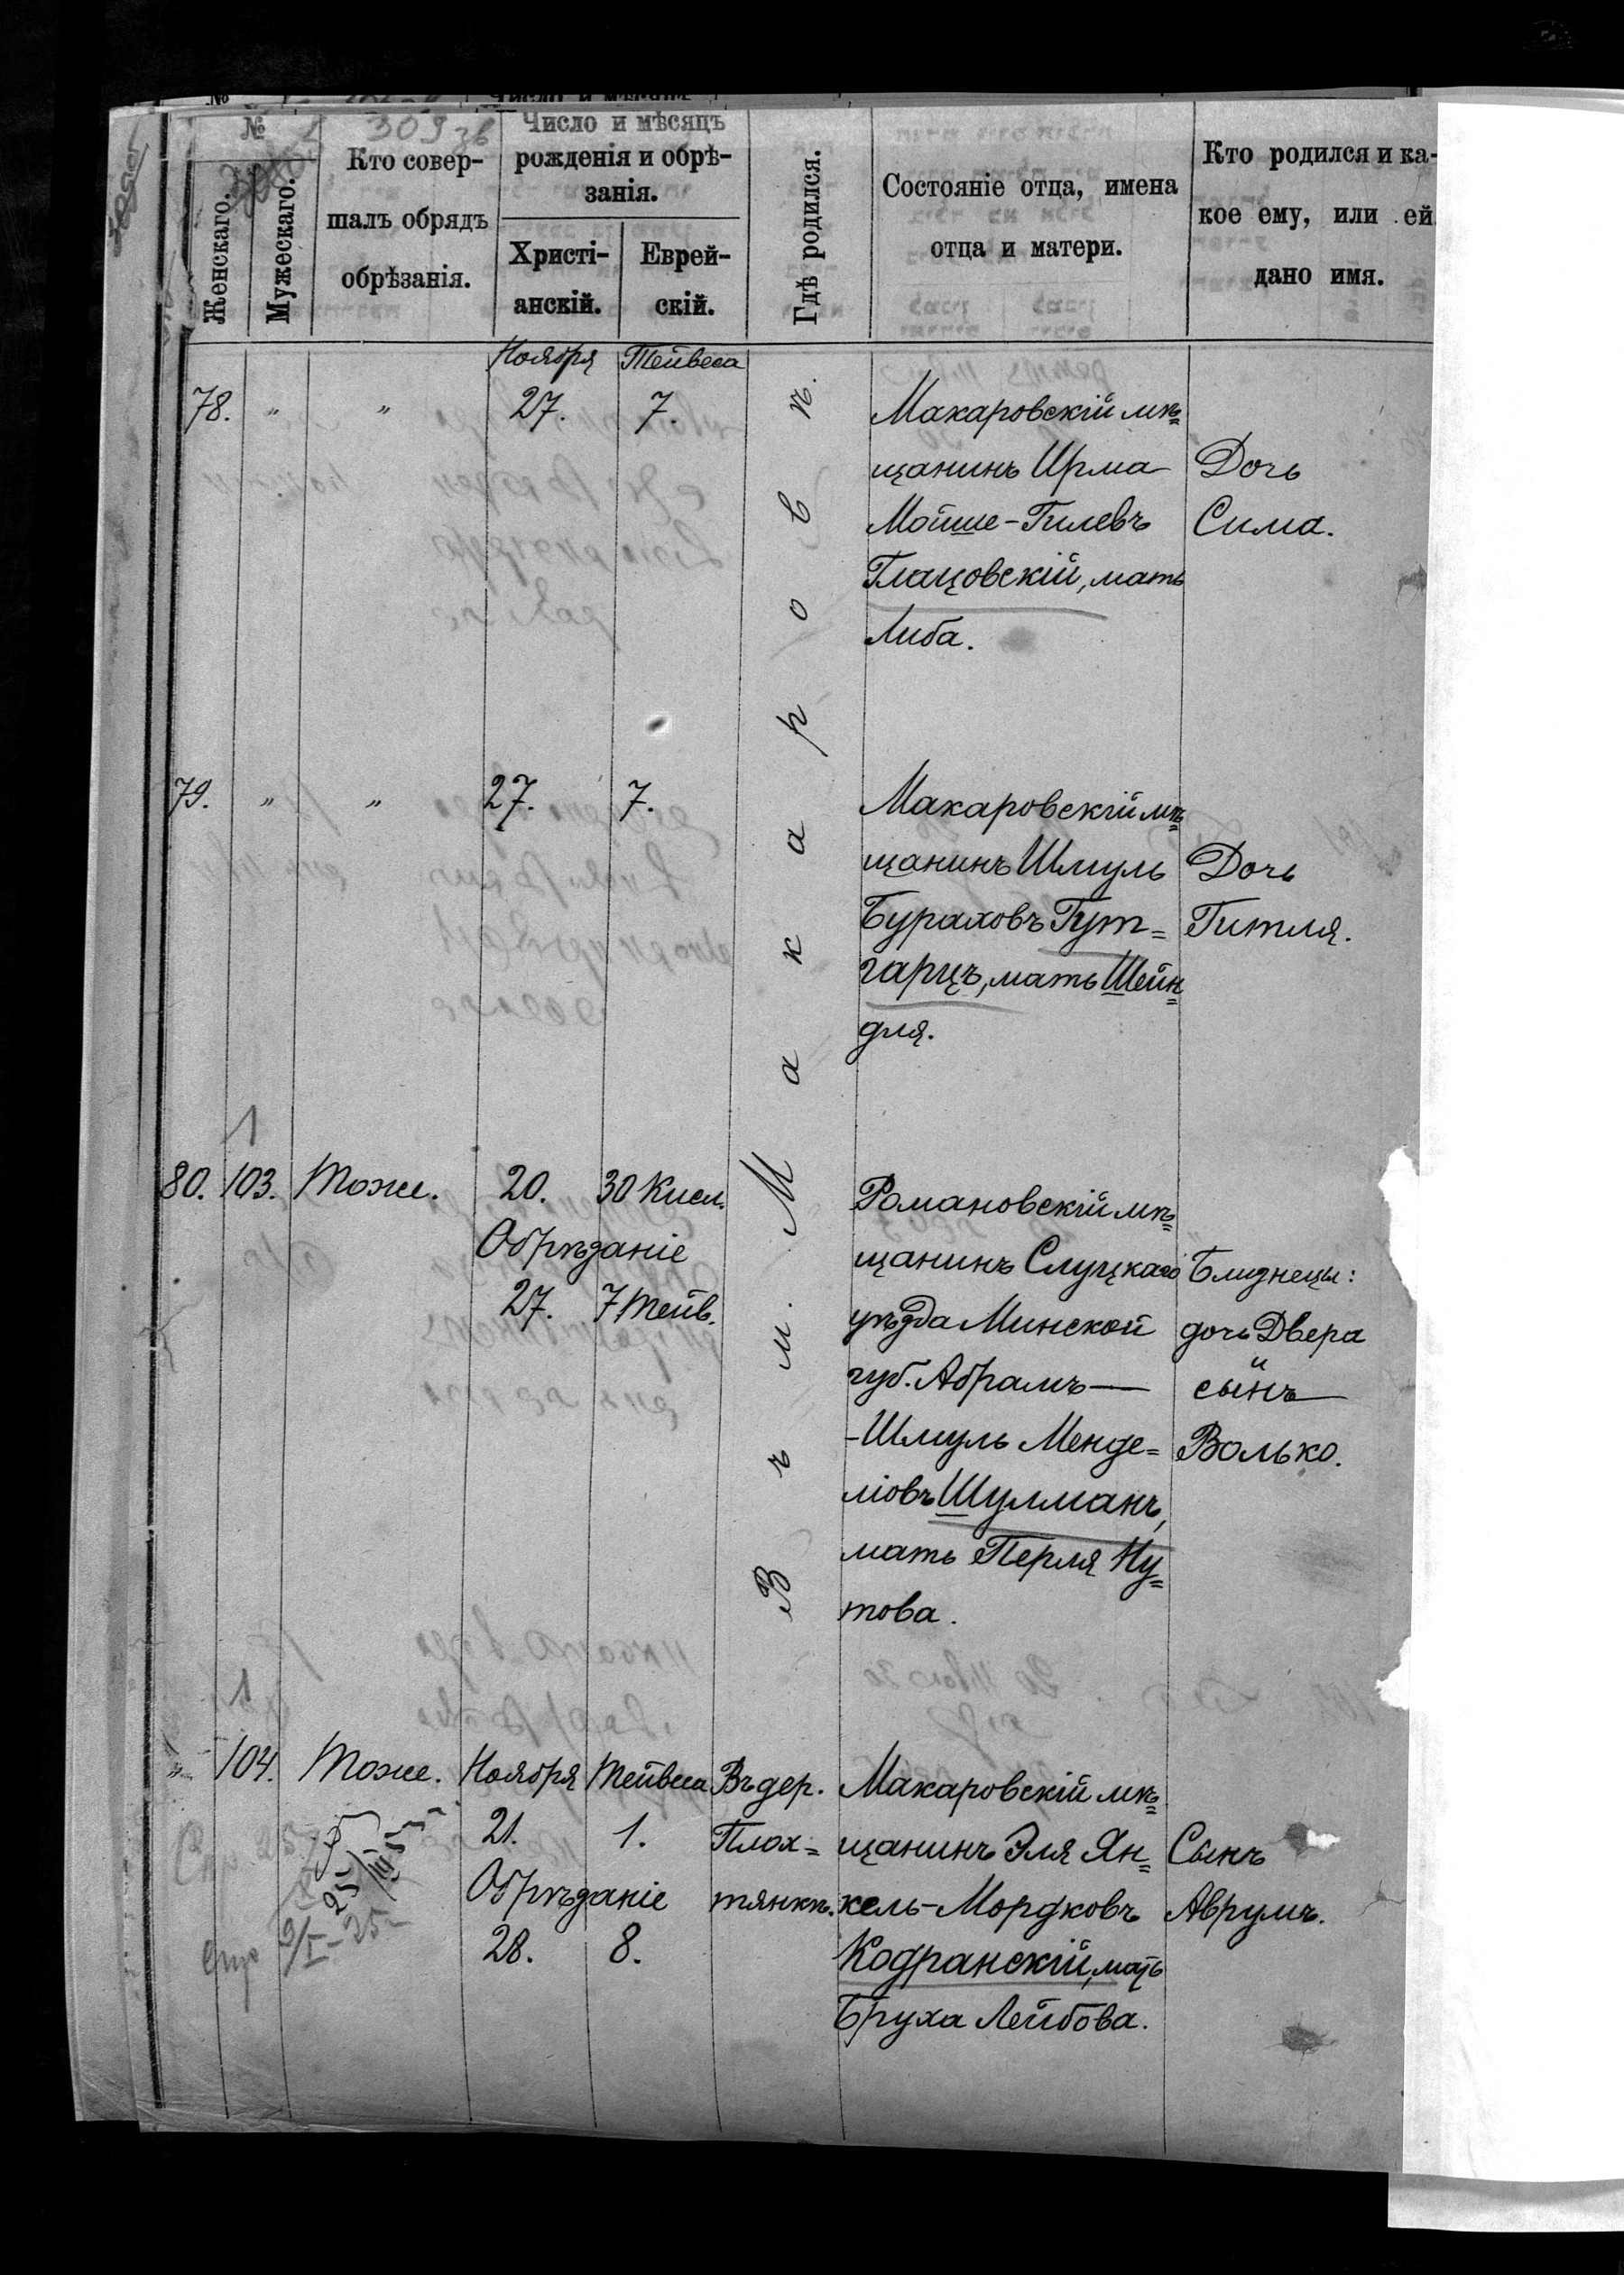 №
309 зв
Женскаго.
Мужескаго.
Кто совер-
шалъ обрядъ
обрѣзанія.
Число и мѣсяцъ
рожденія и обрѣ-
занія.
Христі-
анскій.
Еврей-
скій.
Гдѣ родился.
Состояніе отца, имена
отца и матери.
Кто родился и ка-
кое ему, или ей
дано имя.
Въ м. Макаровѣ.
Ноября Тейвеса
78. „ „ 27. 7.
Макаровскій мѣ=
щанинъ Ирма
Мойше-Гилевъ
Глацовскій, мать
Либа.
Дочь
Сима.
79. „ „ 27. 7.
Макаровскій мѣ=
щанинъ Шмуль
Бураховъ Гут=
гарцъ, мать Шейн=
для.
Дочь
Гитля.
1
80. 103. Тоже. 20. 30 Кисл.
Обрѣзаніе
27. 7 Тейв.
Романовскій мѣ=
щанинъ Слуцкаго
уѣзда Минской
губ. Абрамъ—
-Шмуль Менде=
ліовъ Шулманъ,
мать Перля Ну=
това.
Близнецы:
дочь Двера
и
сынъ
Волько.
1
„ 104. Тоже. Ноября Тейвеса
21. 1.
Обрѣзаніе
28. 8.
Въ дер.
Плах=
тянкѣ.
Макаровскій мѣ=
щанинъ Эля Ян=
кель-Мордковъ
Кодранскій, мать
Бруха Лейбова.
Сынъ
Аврумъ.